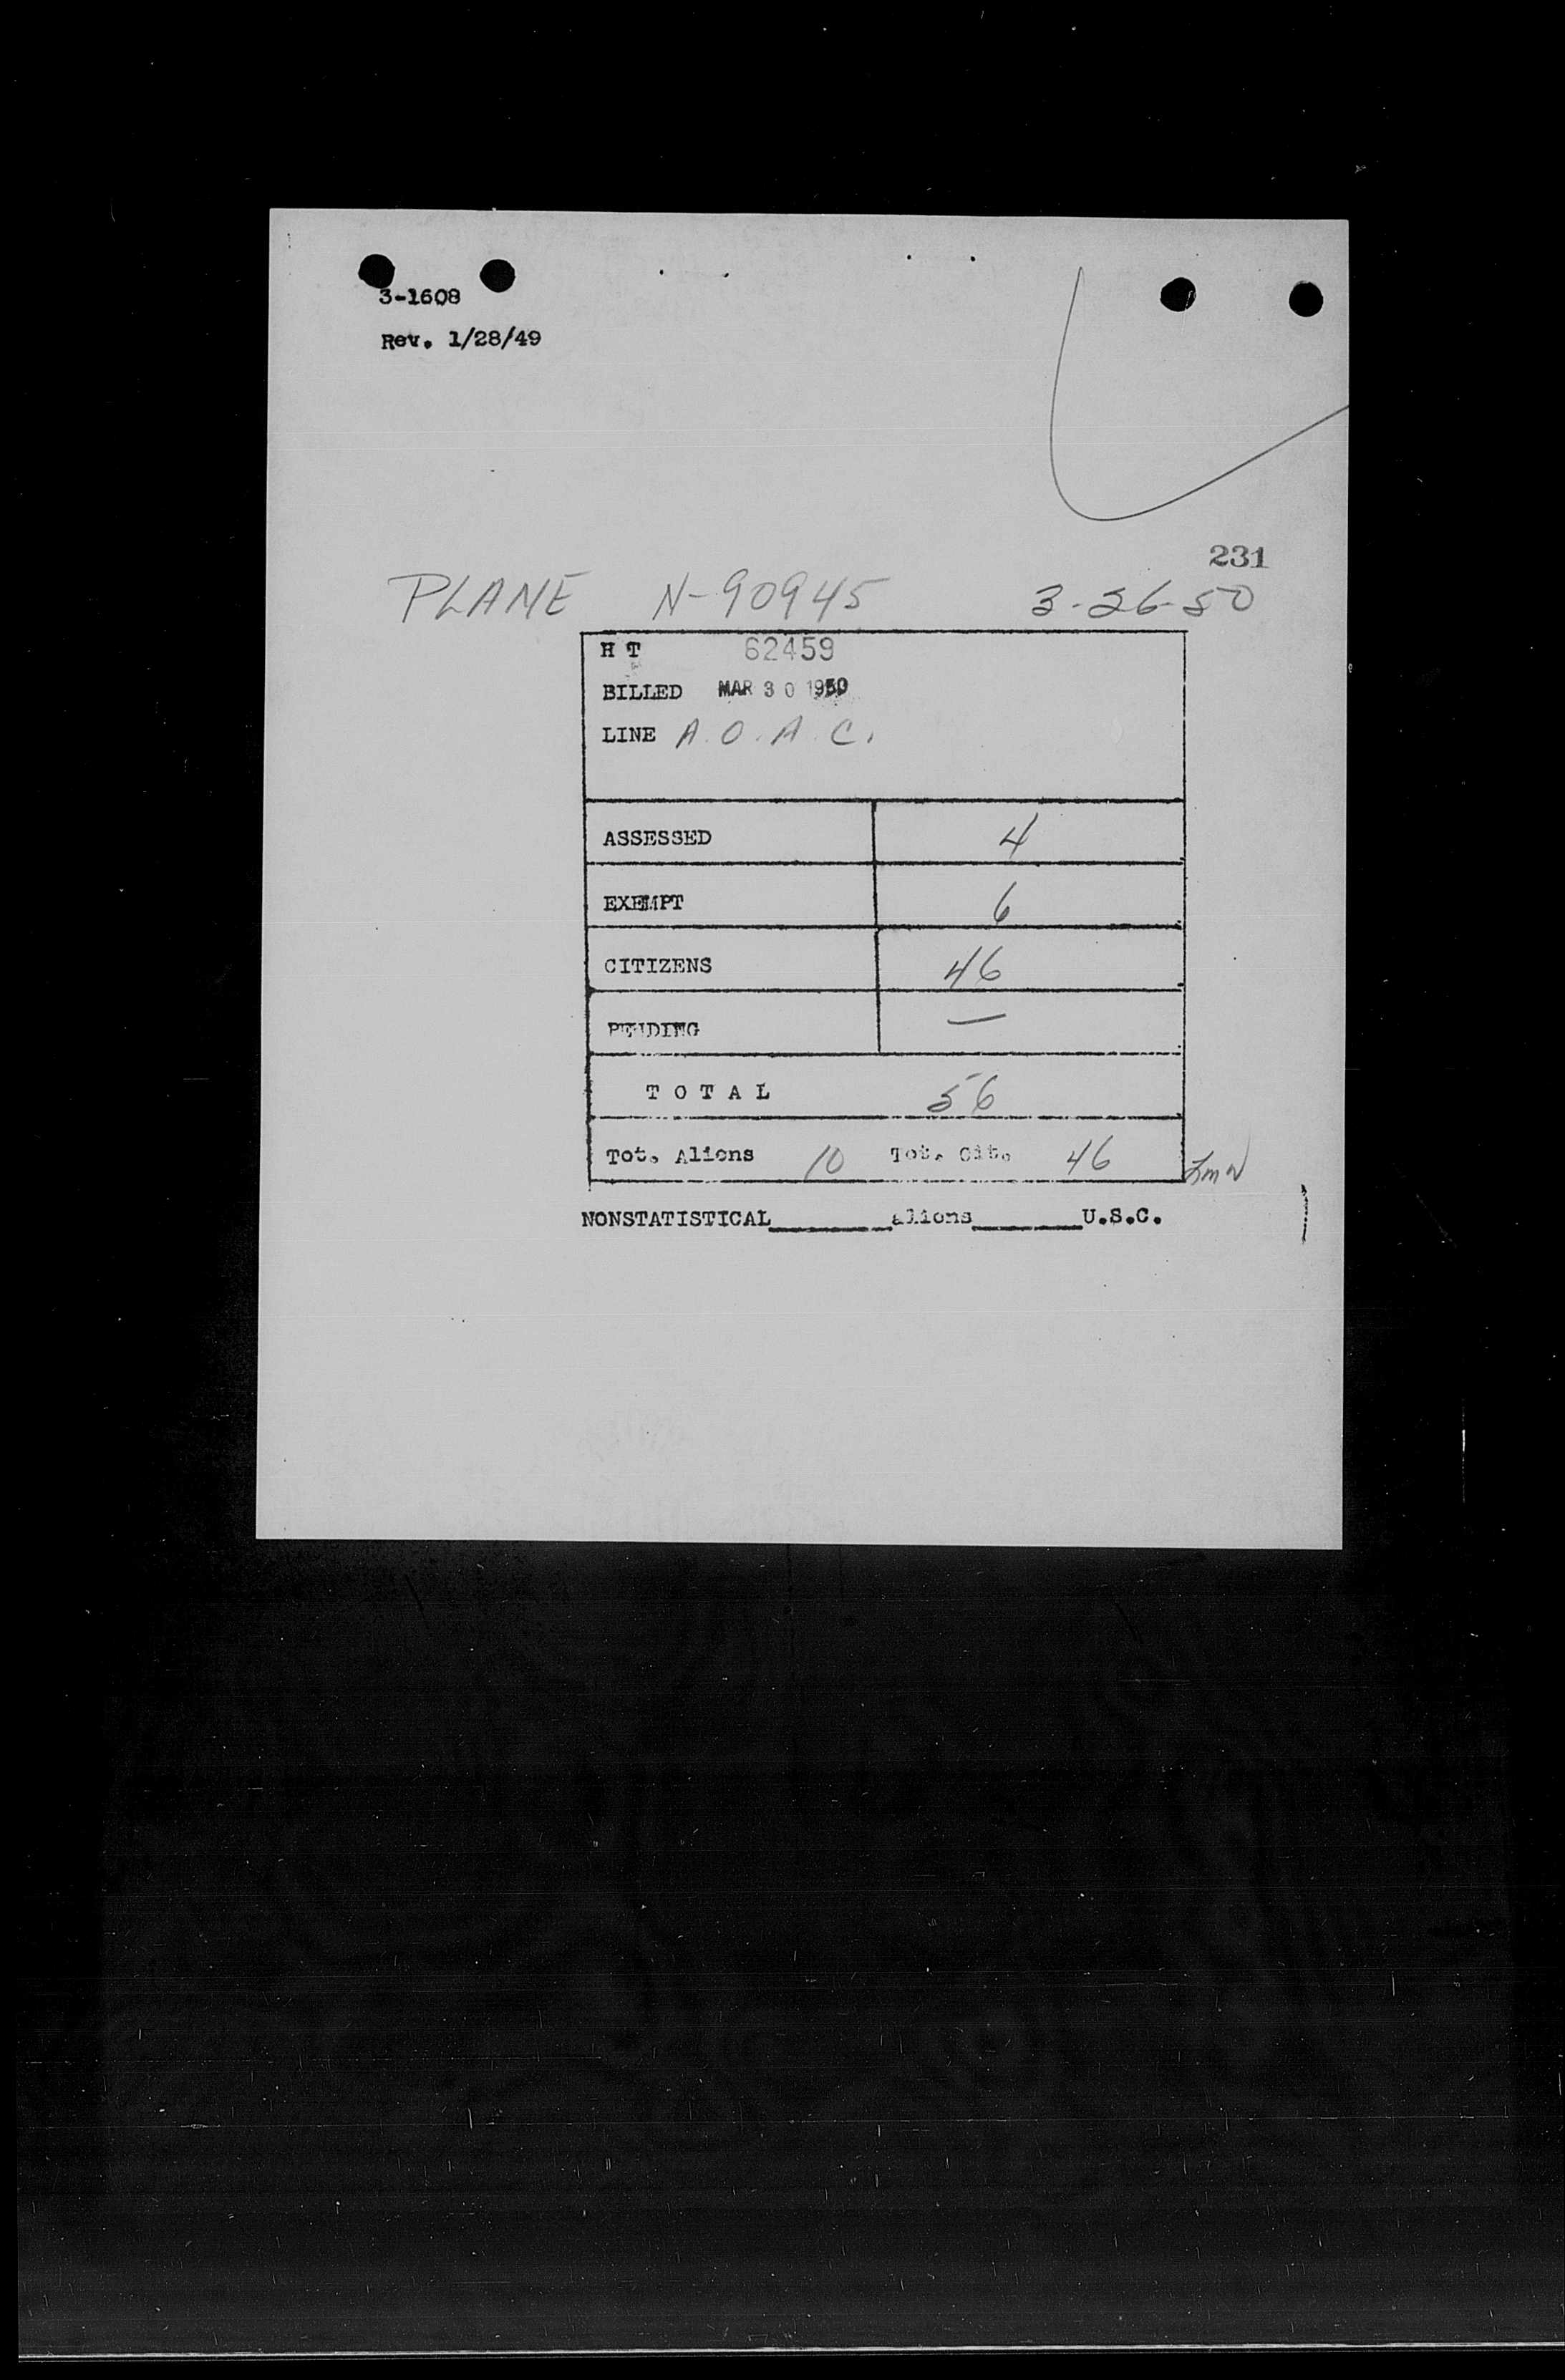 3-1608
Rev. 1/28/49
231
PLANE N-90945 3-26-50
H T 62459
BILLED MAR 30 1950
LINE A.O.A.C.
ASSESSED 4
EXEMPT 6
CITIZENS 46
PENDING —
T O T A L 56
Tot. Aliens 10 Tot. Cit. 46
NONSTATISTICAL________aliens________U.S.C.